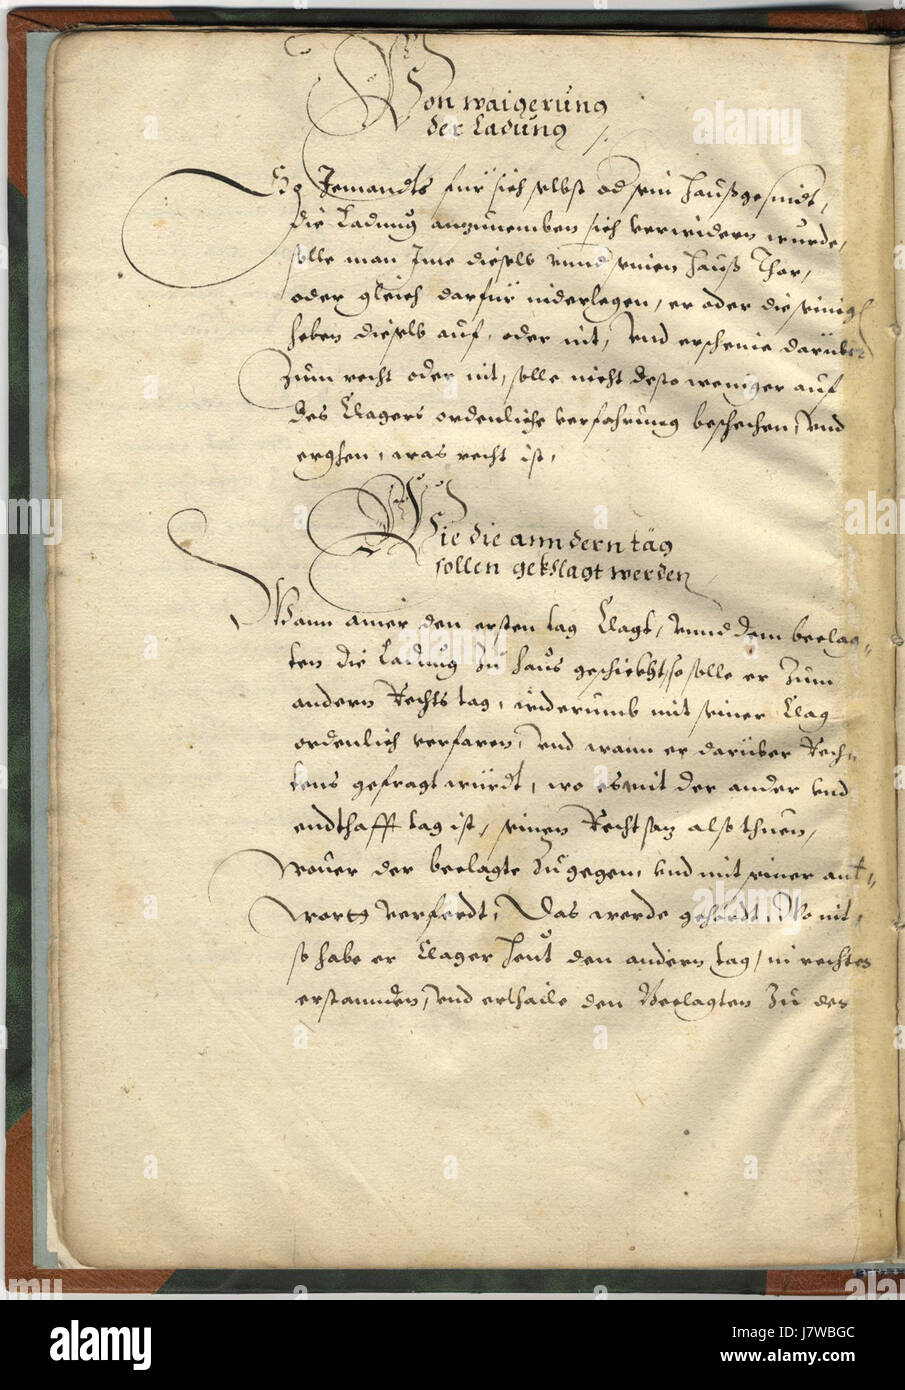 Von waigerung
der Ladung
So Jemandts für sich selbst od sein Haußgesindt,
die Ladung anzunemben sich verwidern wurde,
solle man Jme dieselb vnnd seinen Hauß Thor,
oder gleich darfür niderlegen, er oder die seinig
heben dieselb auf, oder nit, Vnd erscheine darüber
Zum recht oder nit, solle nicht desto weniger auf
des Clagers ordenliche verfahrung beschechen, Vnd
erghen, was recht ist,
Wie die anndern täg
sollen geklagt werden
Wann ainer den ersten tag Clagt, vnnd dem beclag-
ten die Ladung zu haus geschickht, so solle er Zum
andern Rechts tag, widerumb mit seiner Clag
ordenlich verfaren, Vnd wann er darüber Rech-
tens gefragt würdt, wo es nit der ander vnd
endthafft tag ist, seinen Rechtsaz also thuen,
Wouer der beclagte Zugegen, vnd mit seiner ant-
wortt verferdt, Das werde gehördt, Wo nit,
so habe er Clager heut den andern tag, in rechten
erstannden, Vnd erthaile den Beclagten Zu der
alamy
Image ID: J7WBGC
www.alamy.com